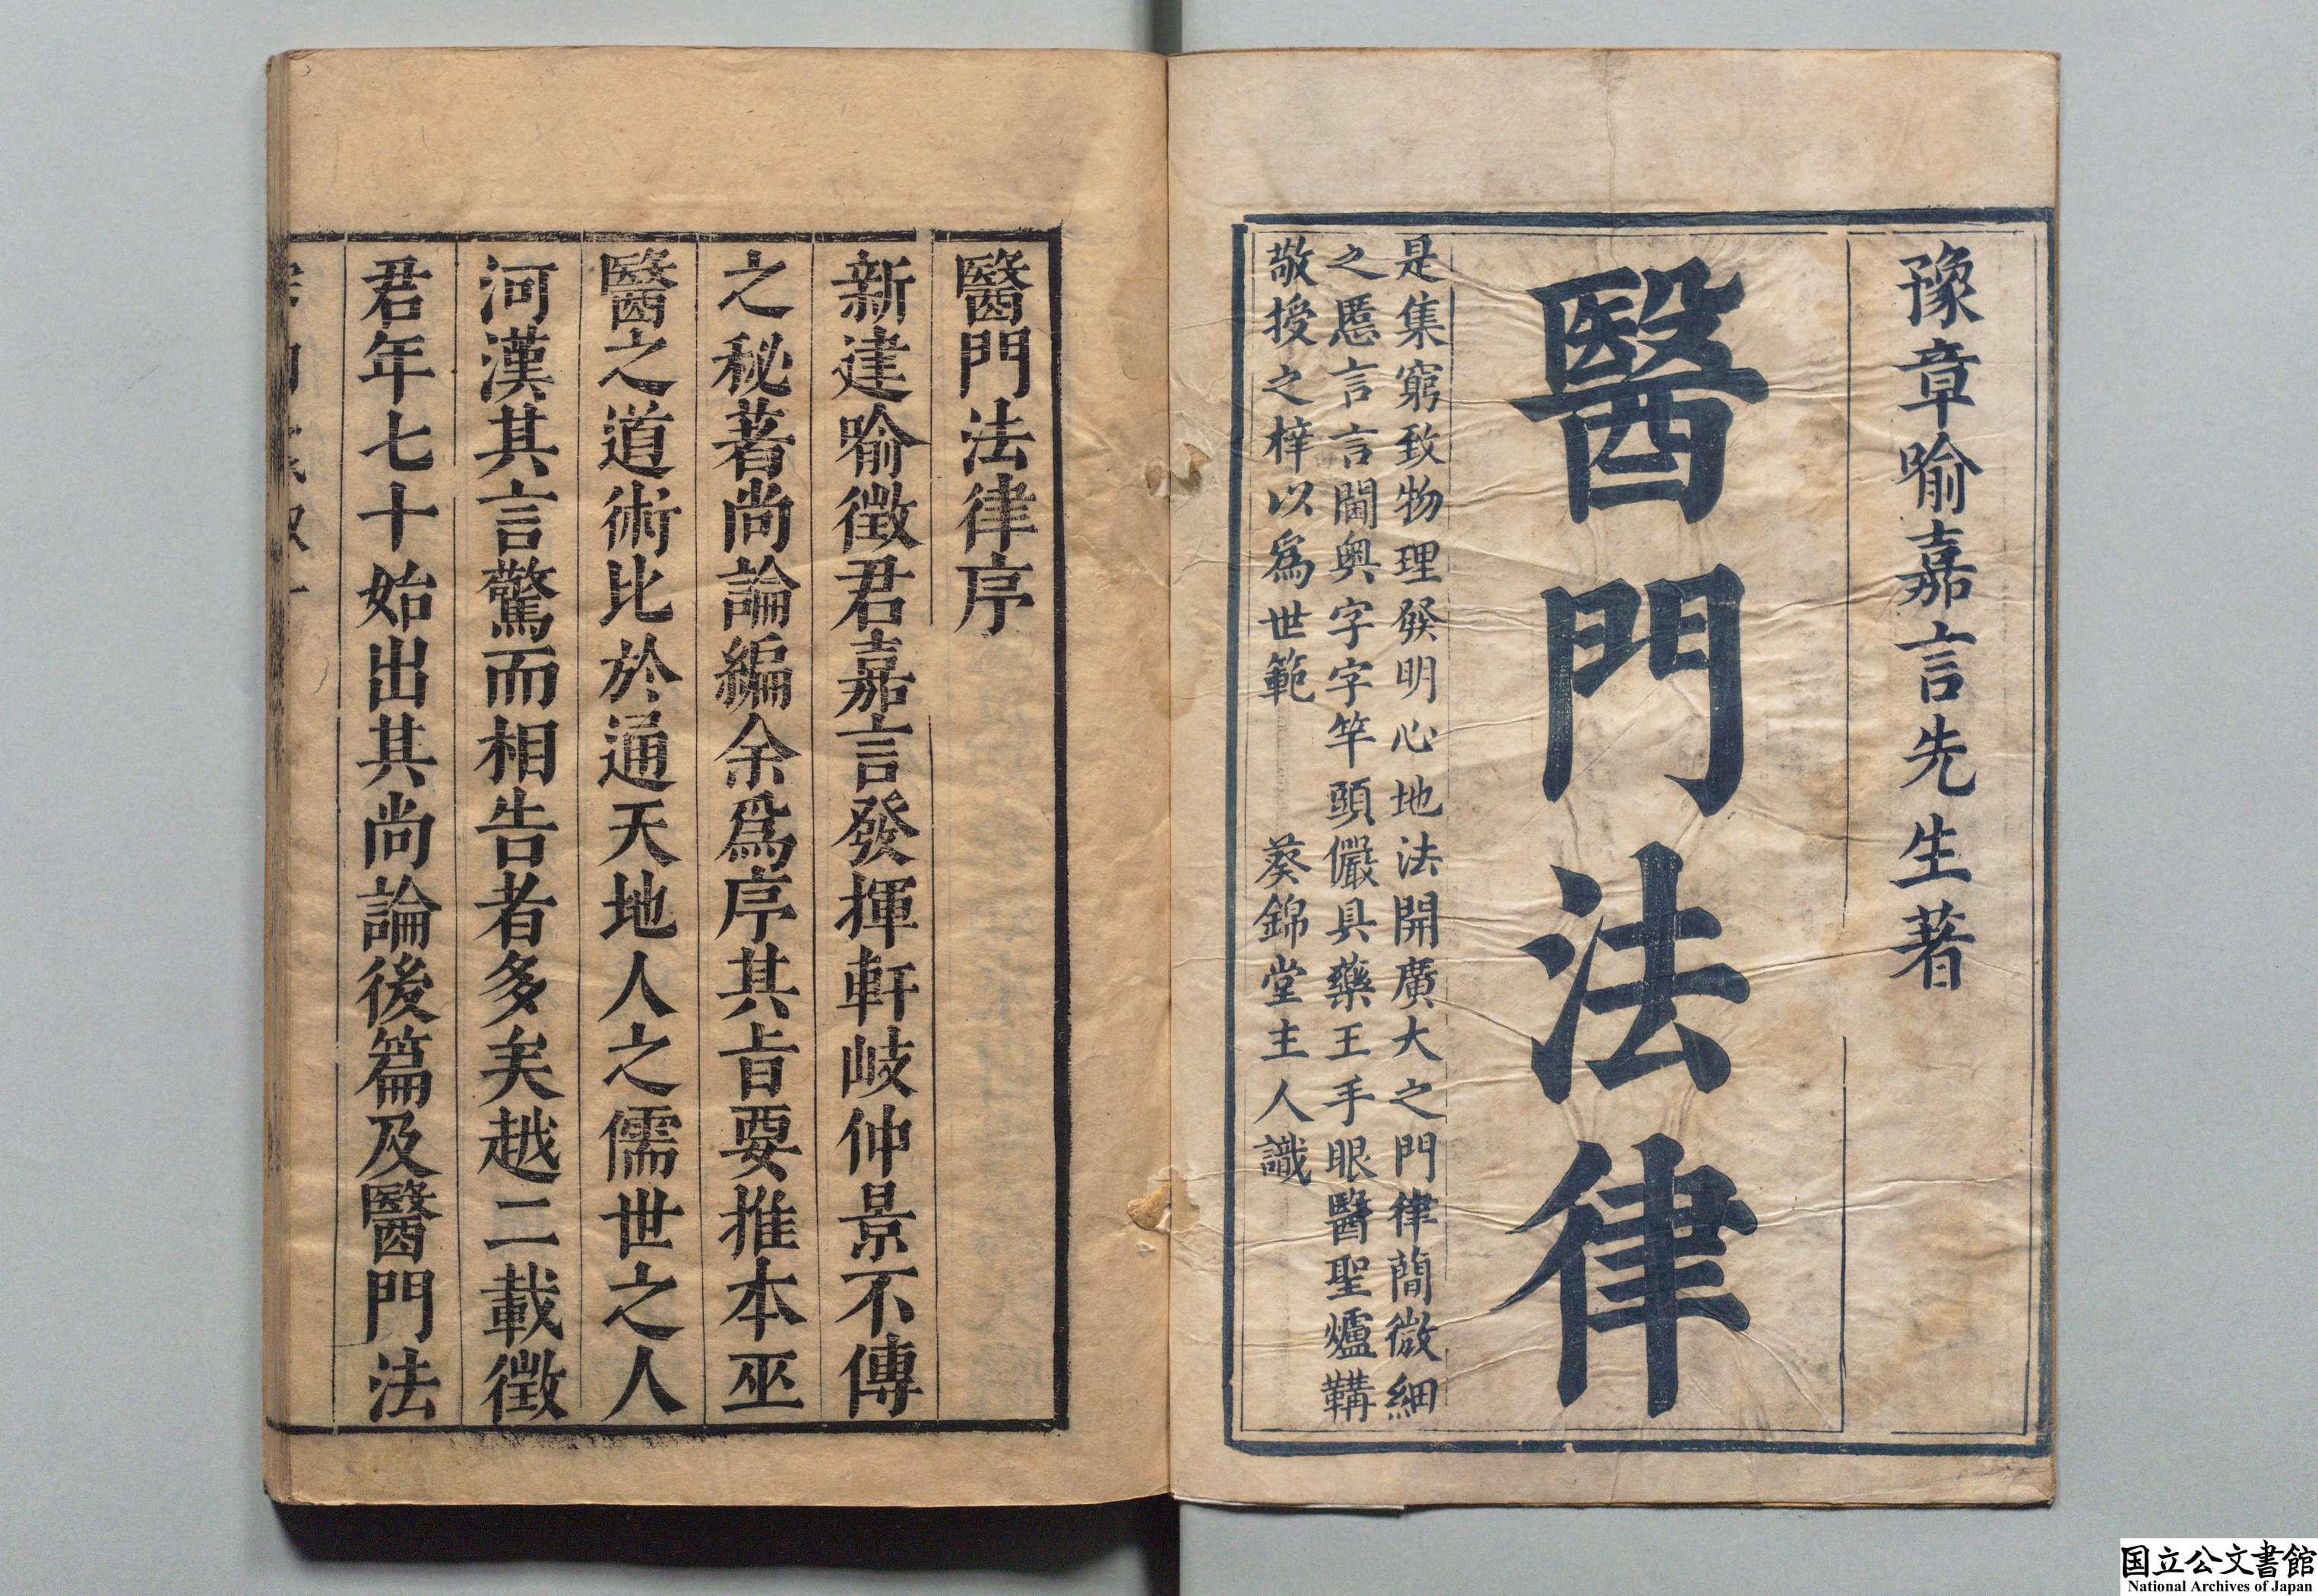 豫章喻嘉言先生著
醫門法律
是集窮致物理發明心地法開廣大之門律簡微細
之慝言言閫奧字字竿頭儼具藥王手眼醫聖爐鞲
敬授之梓以爲世範 葵錦堂主人識
醫門法律序
新建喻徵君嘉言發揮軒岐仲景不傳
之秘著尚論編余爲序其旨要推本巫
醫之道術比於通天地人之儒世之人
河漢其言驚而相告者多矣越二載徵
君年七十始出其尚論後篇及醫門法
国立公文書館
National Archives of Japan